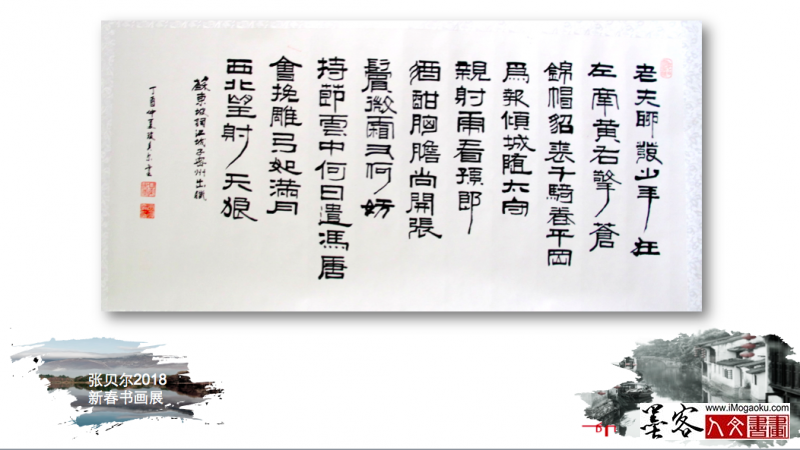 老夫聊發少年狂
左牽黃右擎蒼
錦帽貂裘千騎卷平岡
爲報傾城隨太守
親射虎看孫郎
酒酣胸膽尚開張
鬢微霜又何妨
持節雲中何日遣馮唐
會挽雕弓如滿月
西北望射天狼
蘇東坡詞江城子密州出獵
丁酉仲夏
张贝尔2018
新春书画展
墨客
www.iMogaoku.com
人文書畫